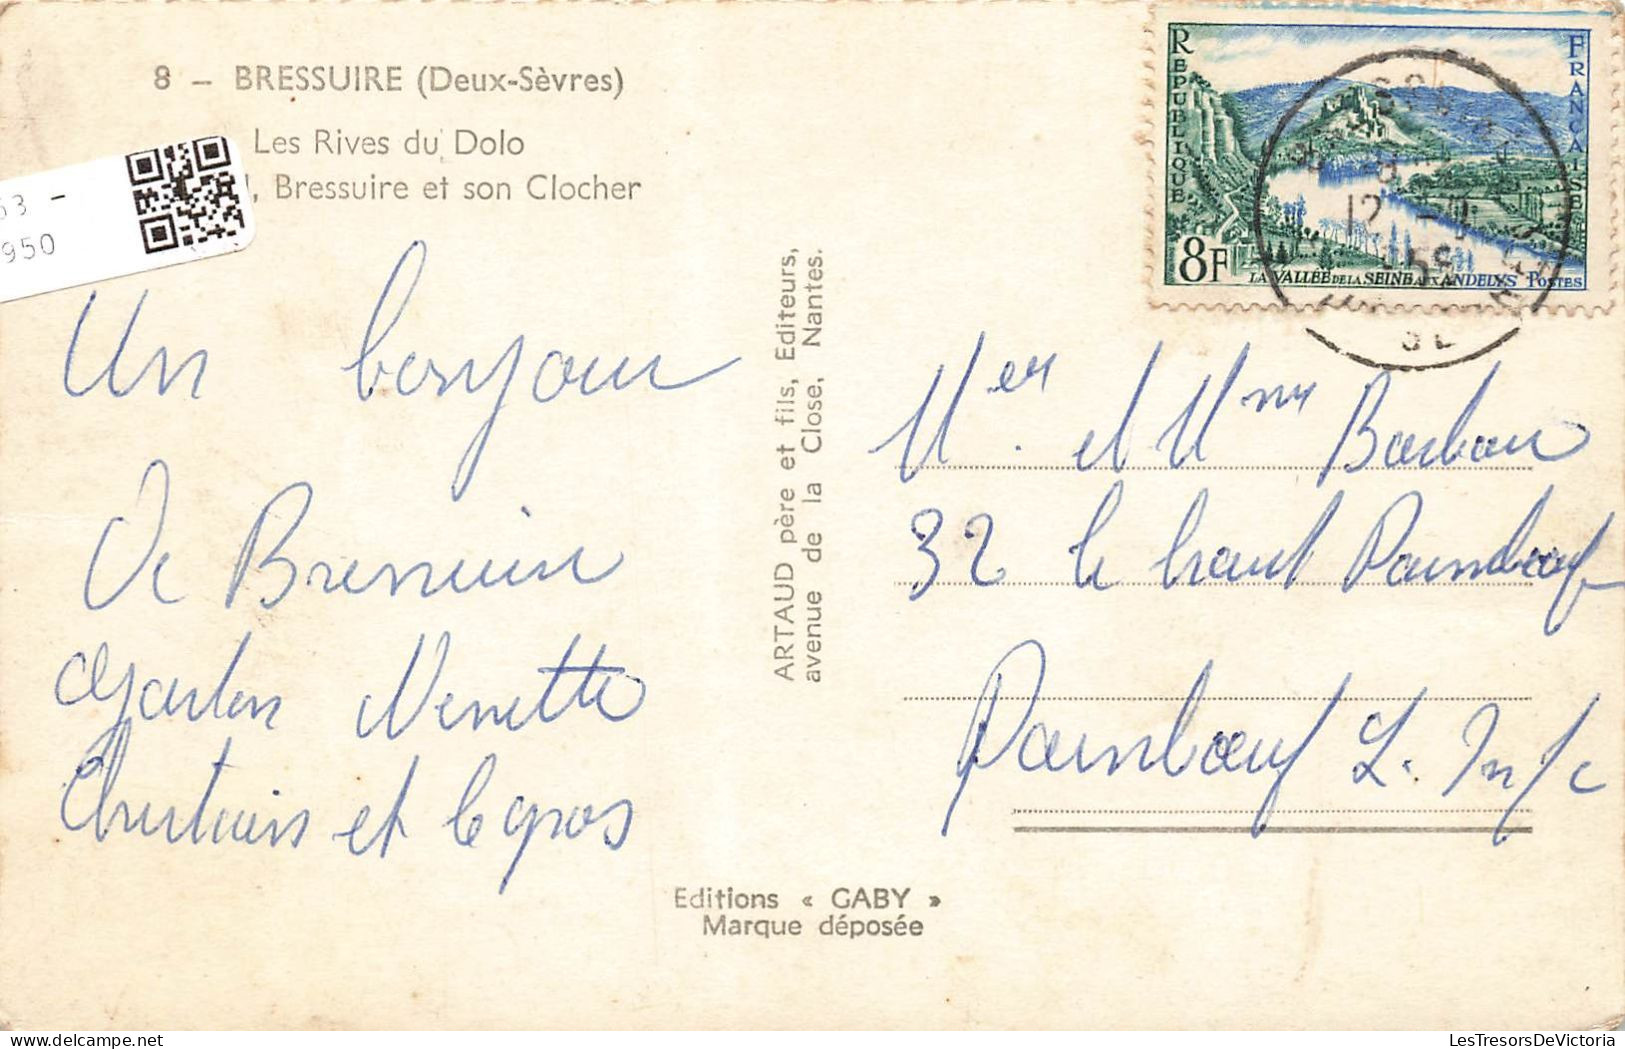 8 – BRESSUIRE (Deux-Sèvres)
Les Rives du Dolo
, Bressuire et son Clocher
53 -
950
Un bonjour
De Bressuire
Gaston Nenette
et le gros
ARTAUD père et fils, Editeurs,
avenue de la Close, Nantes.
Editions « GABY »
Marque déposée
REPUBLIQUE FRANÇAISE
8F
LA VALLÉE DE LA SEINE AUX ANDELYS POSTES
12
Mer et Mme Barbau
32 le haut Paimboeuf
Paimboeuf L. Infe
LesTresorsDeVictoria